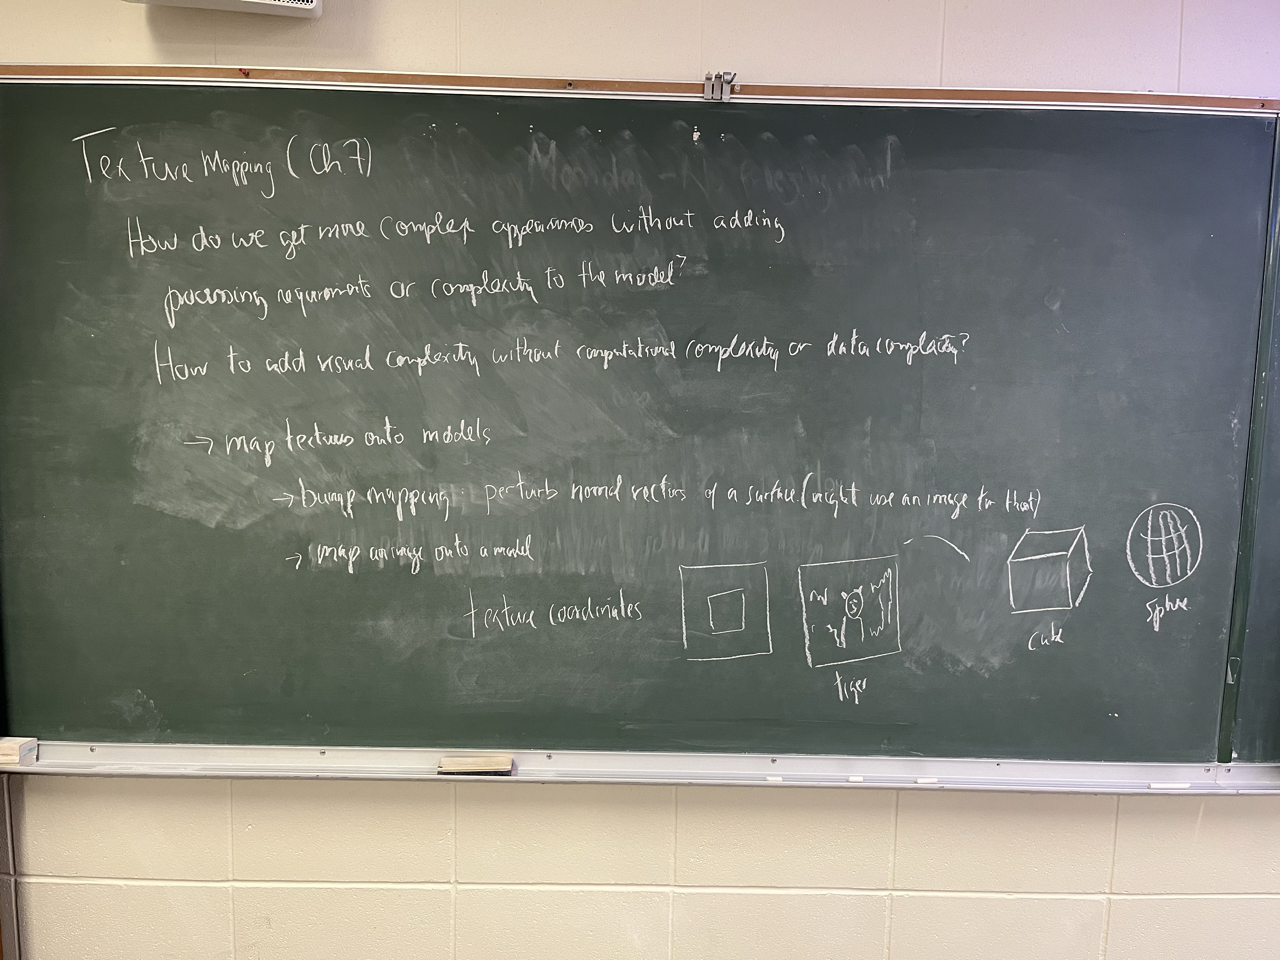 Texture Mapping (Ch 7)
How do we get more complex appearances without adding
processing requirements or complexity to the model?
How to add visual complexity without computational complexity or data complexity?
→ map textures onto models
→ bump mapping: perturb normal vectors of a surface (might use an image for that)
→ map an image onto a model
texture coordinates
tiger
cube
sphere